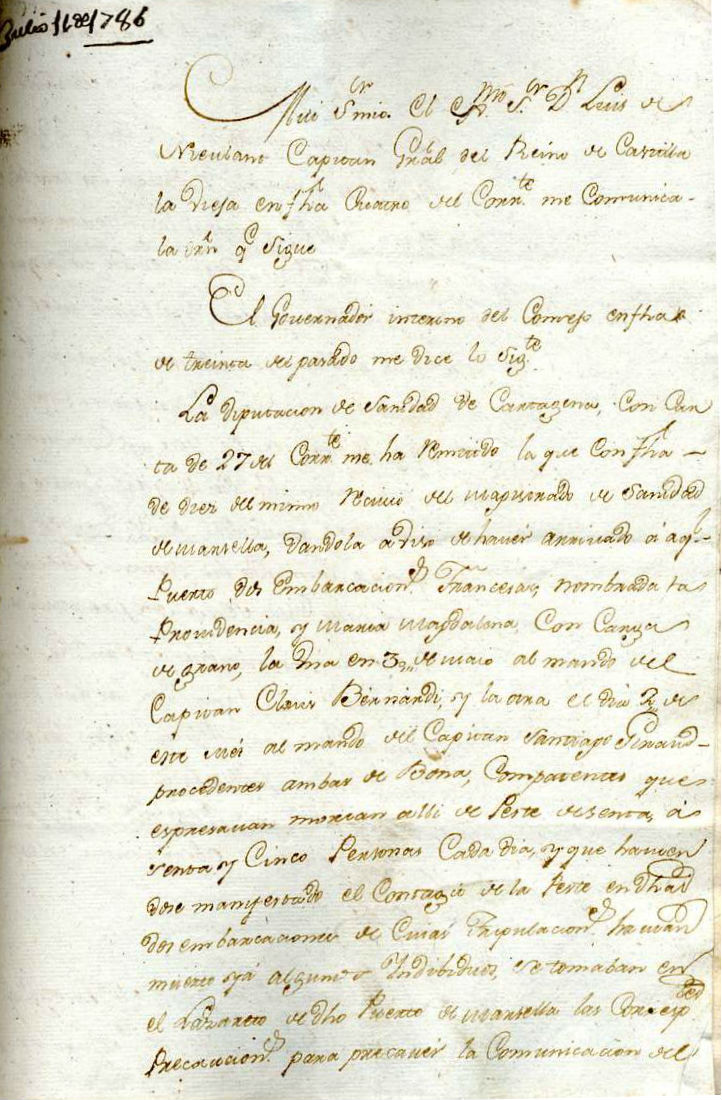 Julio 11 de 1786
Mui Sr. mio. El Exmo. Sr. Dn. Luis de
Nieulant Capitan Gral del Reino de Castilla
la Vieja en fha Quatro del Corrte. me Comunica-
la orn qe Sigue
El Governador interino del Consejo en fha
de treinta del pasado me dice lo Sigte.
La Diputacion de Sanidad de Cartagena, con Car
ta de 27 del Corrte. me ha remitido la que con fha
de diez del mismo recivió del Magistrado de Sanidad
de Marsella, dandola aviso de haver arrivado á aql
Puerto dos Embarcacions. Francesas, nombradas la
Providencia, y Maria Magdalena, Con Carga
de grano, la Una en 3 de Maio al mando del
Capitan Bernardi, y la otra el dia 2 de
este Mes al mando del Capitan Santiago Giraud
procedentes ambas de Bona, Con patentes que
espresavan morian alli de Peste de Senta á
Senta y Cinco Personas Cada dia, y que havien
dose manifestado el Contagio de la Peste en dhas
dos embarcaciones de Cuias Tripulacions. havian
muerto yá algunos Indibiduos, se tomaban en
el Lazareto de dho Puerto de Marsella las
Precaucions. para precaver la Comunicacion del